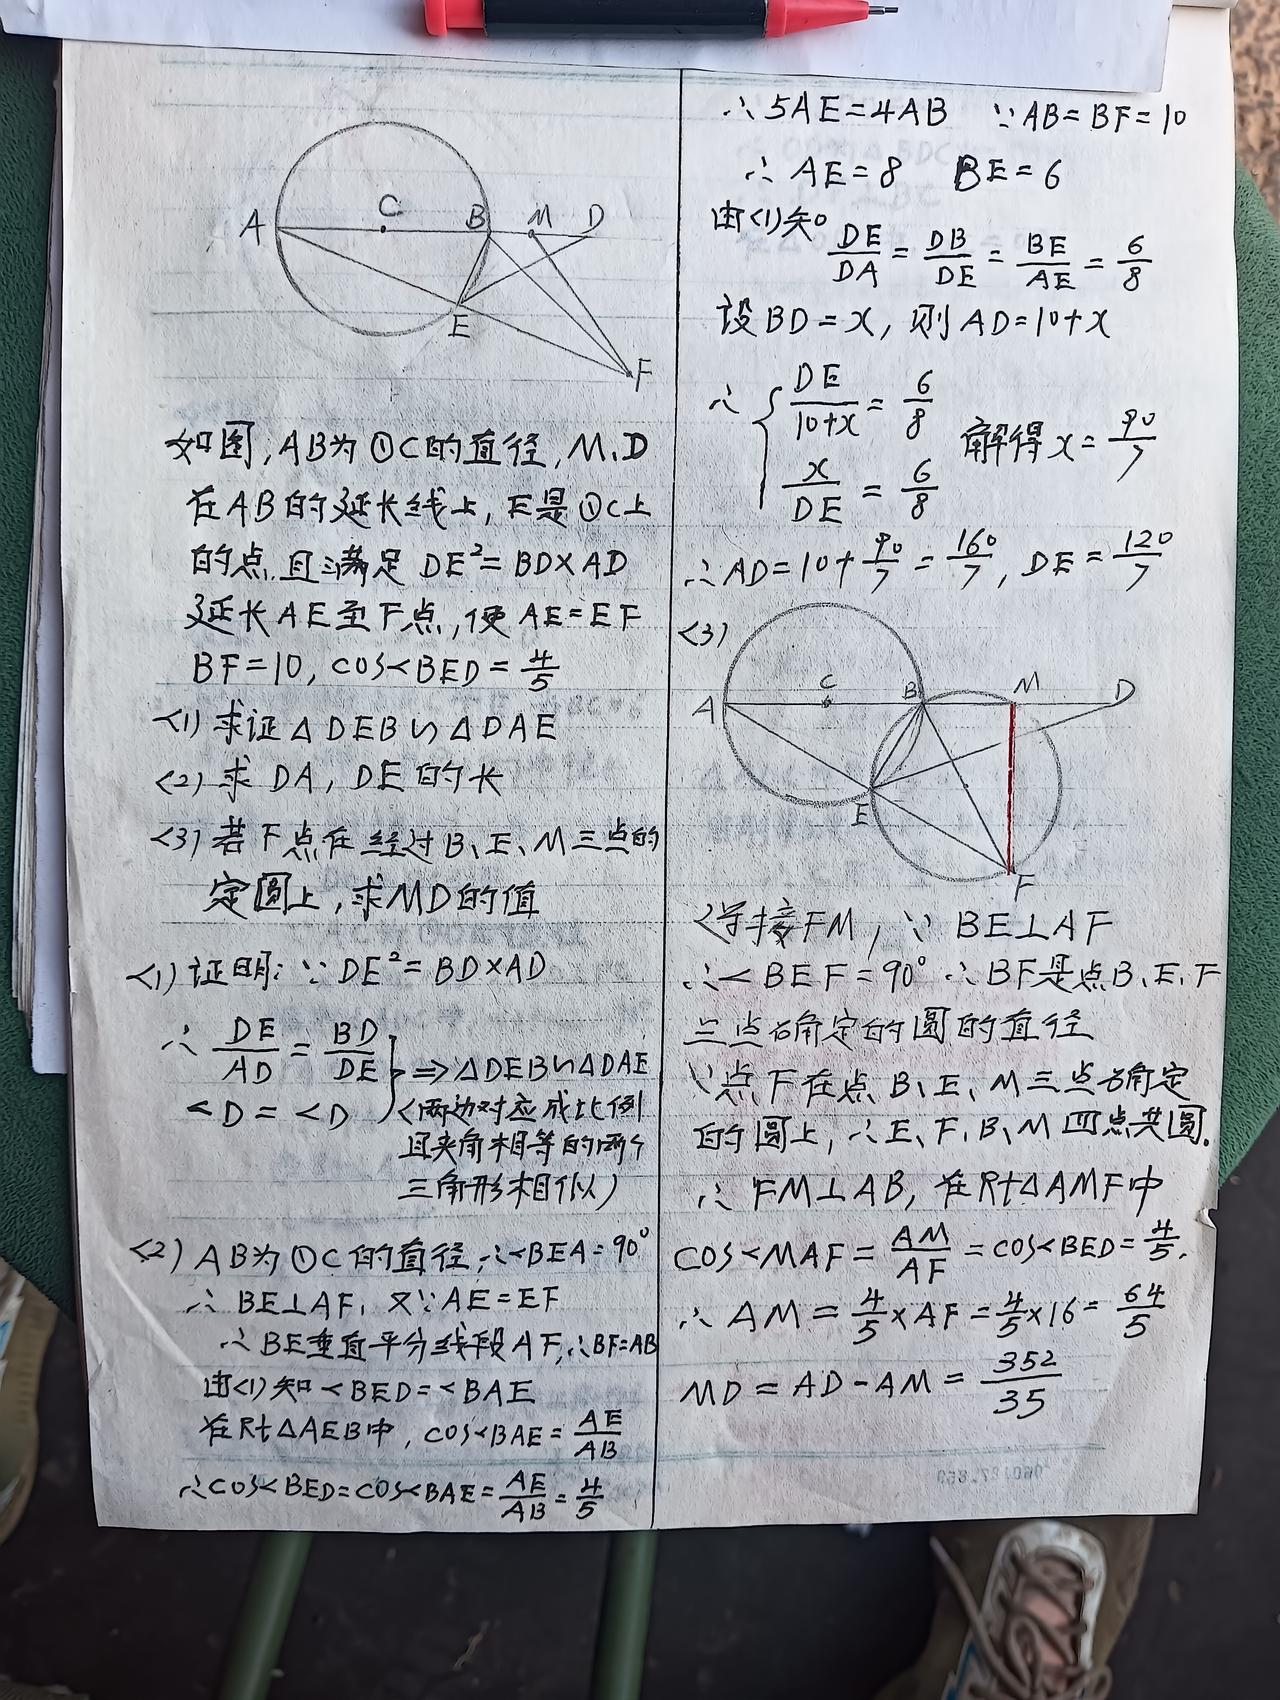 A C B M D
E
F
如图,AB为⊙C的直径,M、D
在AB的延长线上,E是⊙C上
的点,且满足 DE²=BD×AD
延长AE至F点,使AE=EF
BF=10, cos<BED=4/5
<1) 求证△DEB∽△DAE
<2) 求 DA, DE的长
<3) 若F点在经过B、E、M三点的
定圆上,求MD的值
<1) 证明:∵DE²=BD×AD
∴ DE/AD = BD/DE
<D = <D } ⇒△DEB∽△DAE
<两边对应成比例
且夹角相等的两个
三角形相似)
<2) AB为⊙C的直径,∴<BEA=90°
∴ BE⊥AF, 又∵AE=EF
∴BE垂直平分线段AF,∴BF=AB
由<1)知<BED=<BAE
在Rt△AEB中, cos<BAE=AE/AB
∴cos<BED=cos<BAE=AE/AB=4/5
∴5AE=4AB ∵AB=BF=10
∴AE=8 BE=6
由<1)知
DE/DA = DB/DE = BE/AE = 6/8
设BD=x, 则AD=10+x
∴ { DE/10+x = 6/8
x/DE = 6/8
解得x=90/7
∴AD=10+90/7=160/7, DE=120/7
<3)
A C B M D
E
F
连接FM, ∵ BE⊥AF
∴<BEF=90° ∴BF是点B、E、F
三点确定的圆的直径
∵点F在点B、E、M三点确定
的圆上,∴E、F、B、M四点共圆.
∴ FM⊥AB, 在Rt△AMF中
cos<MAF=AM/AF=cos<BED=4/5.
∴ AM=4/5×AF=4/5×16=64/5
MD=AD-AM=352/35